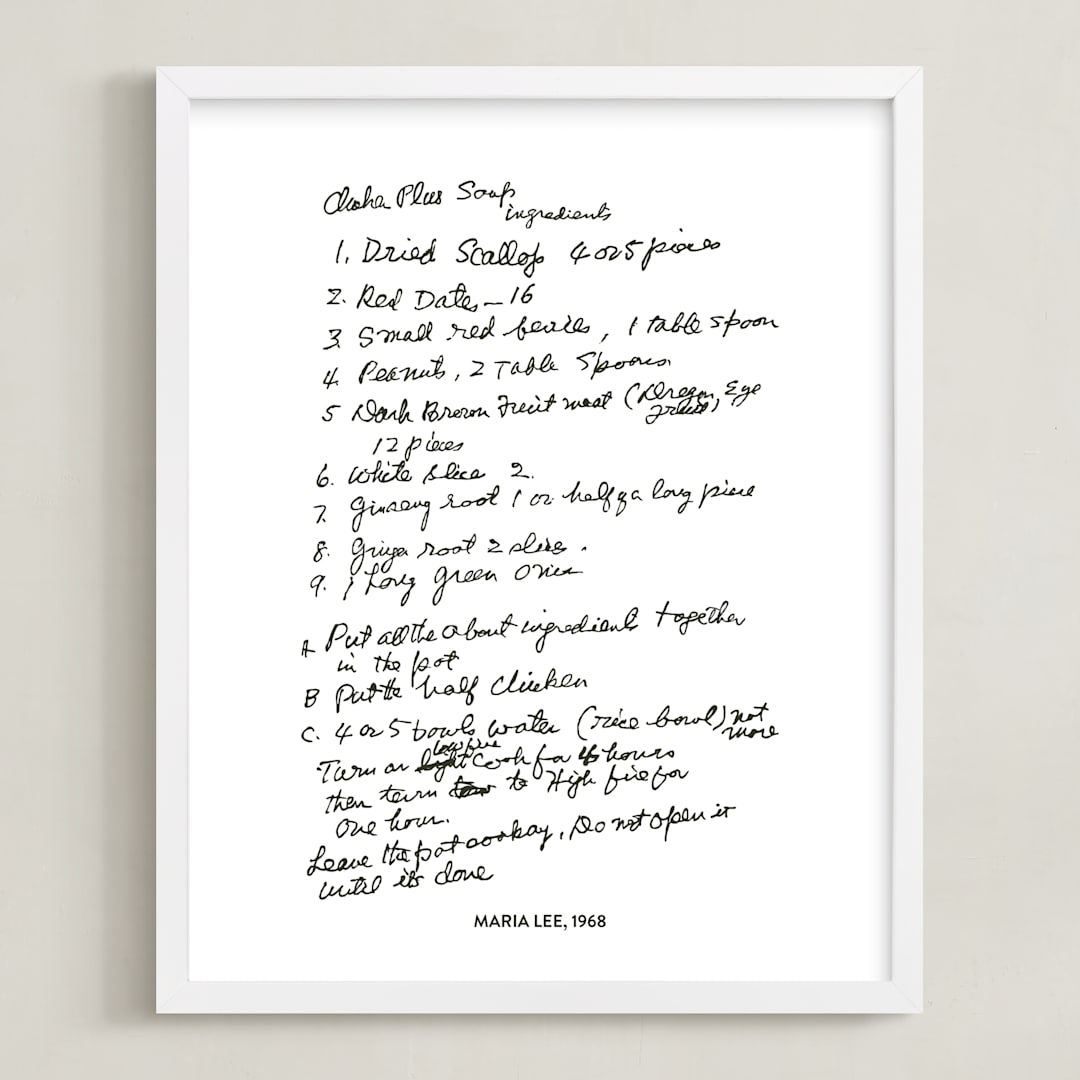 Aloha Plus Soup
ingredients
1. Dried Scallop 4 or 5 pieces
2. Red Dates – 16
3 Small red berries, 1 table spoon
4. Peanuts, 2 Table Spoons.
5 Dark Brown Fruit meat (Dragon Eye
fruit),
12 pieces
6. White slice 2.
7. Ginseng root 1 or half of a long piece
8. root 2 slices.
9. 1 Long green
A Put all the about ingredients together
in the pot
B Put the half Chicken
C. 4 or 5 bowls water (rice bowl) not
more
Turn on low fire Cook for 4 hours
then turn to High fire for
one hour.
Leave the pot . Do not open it
until it's done
MARIA LEE, 1968